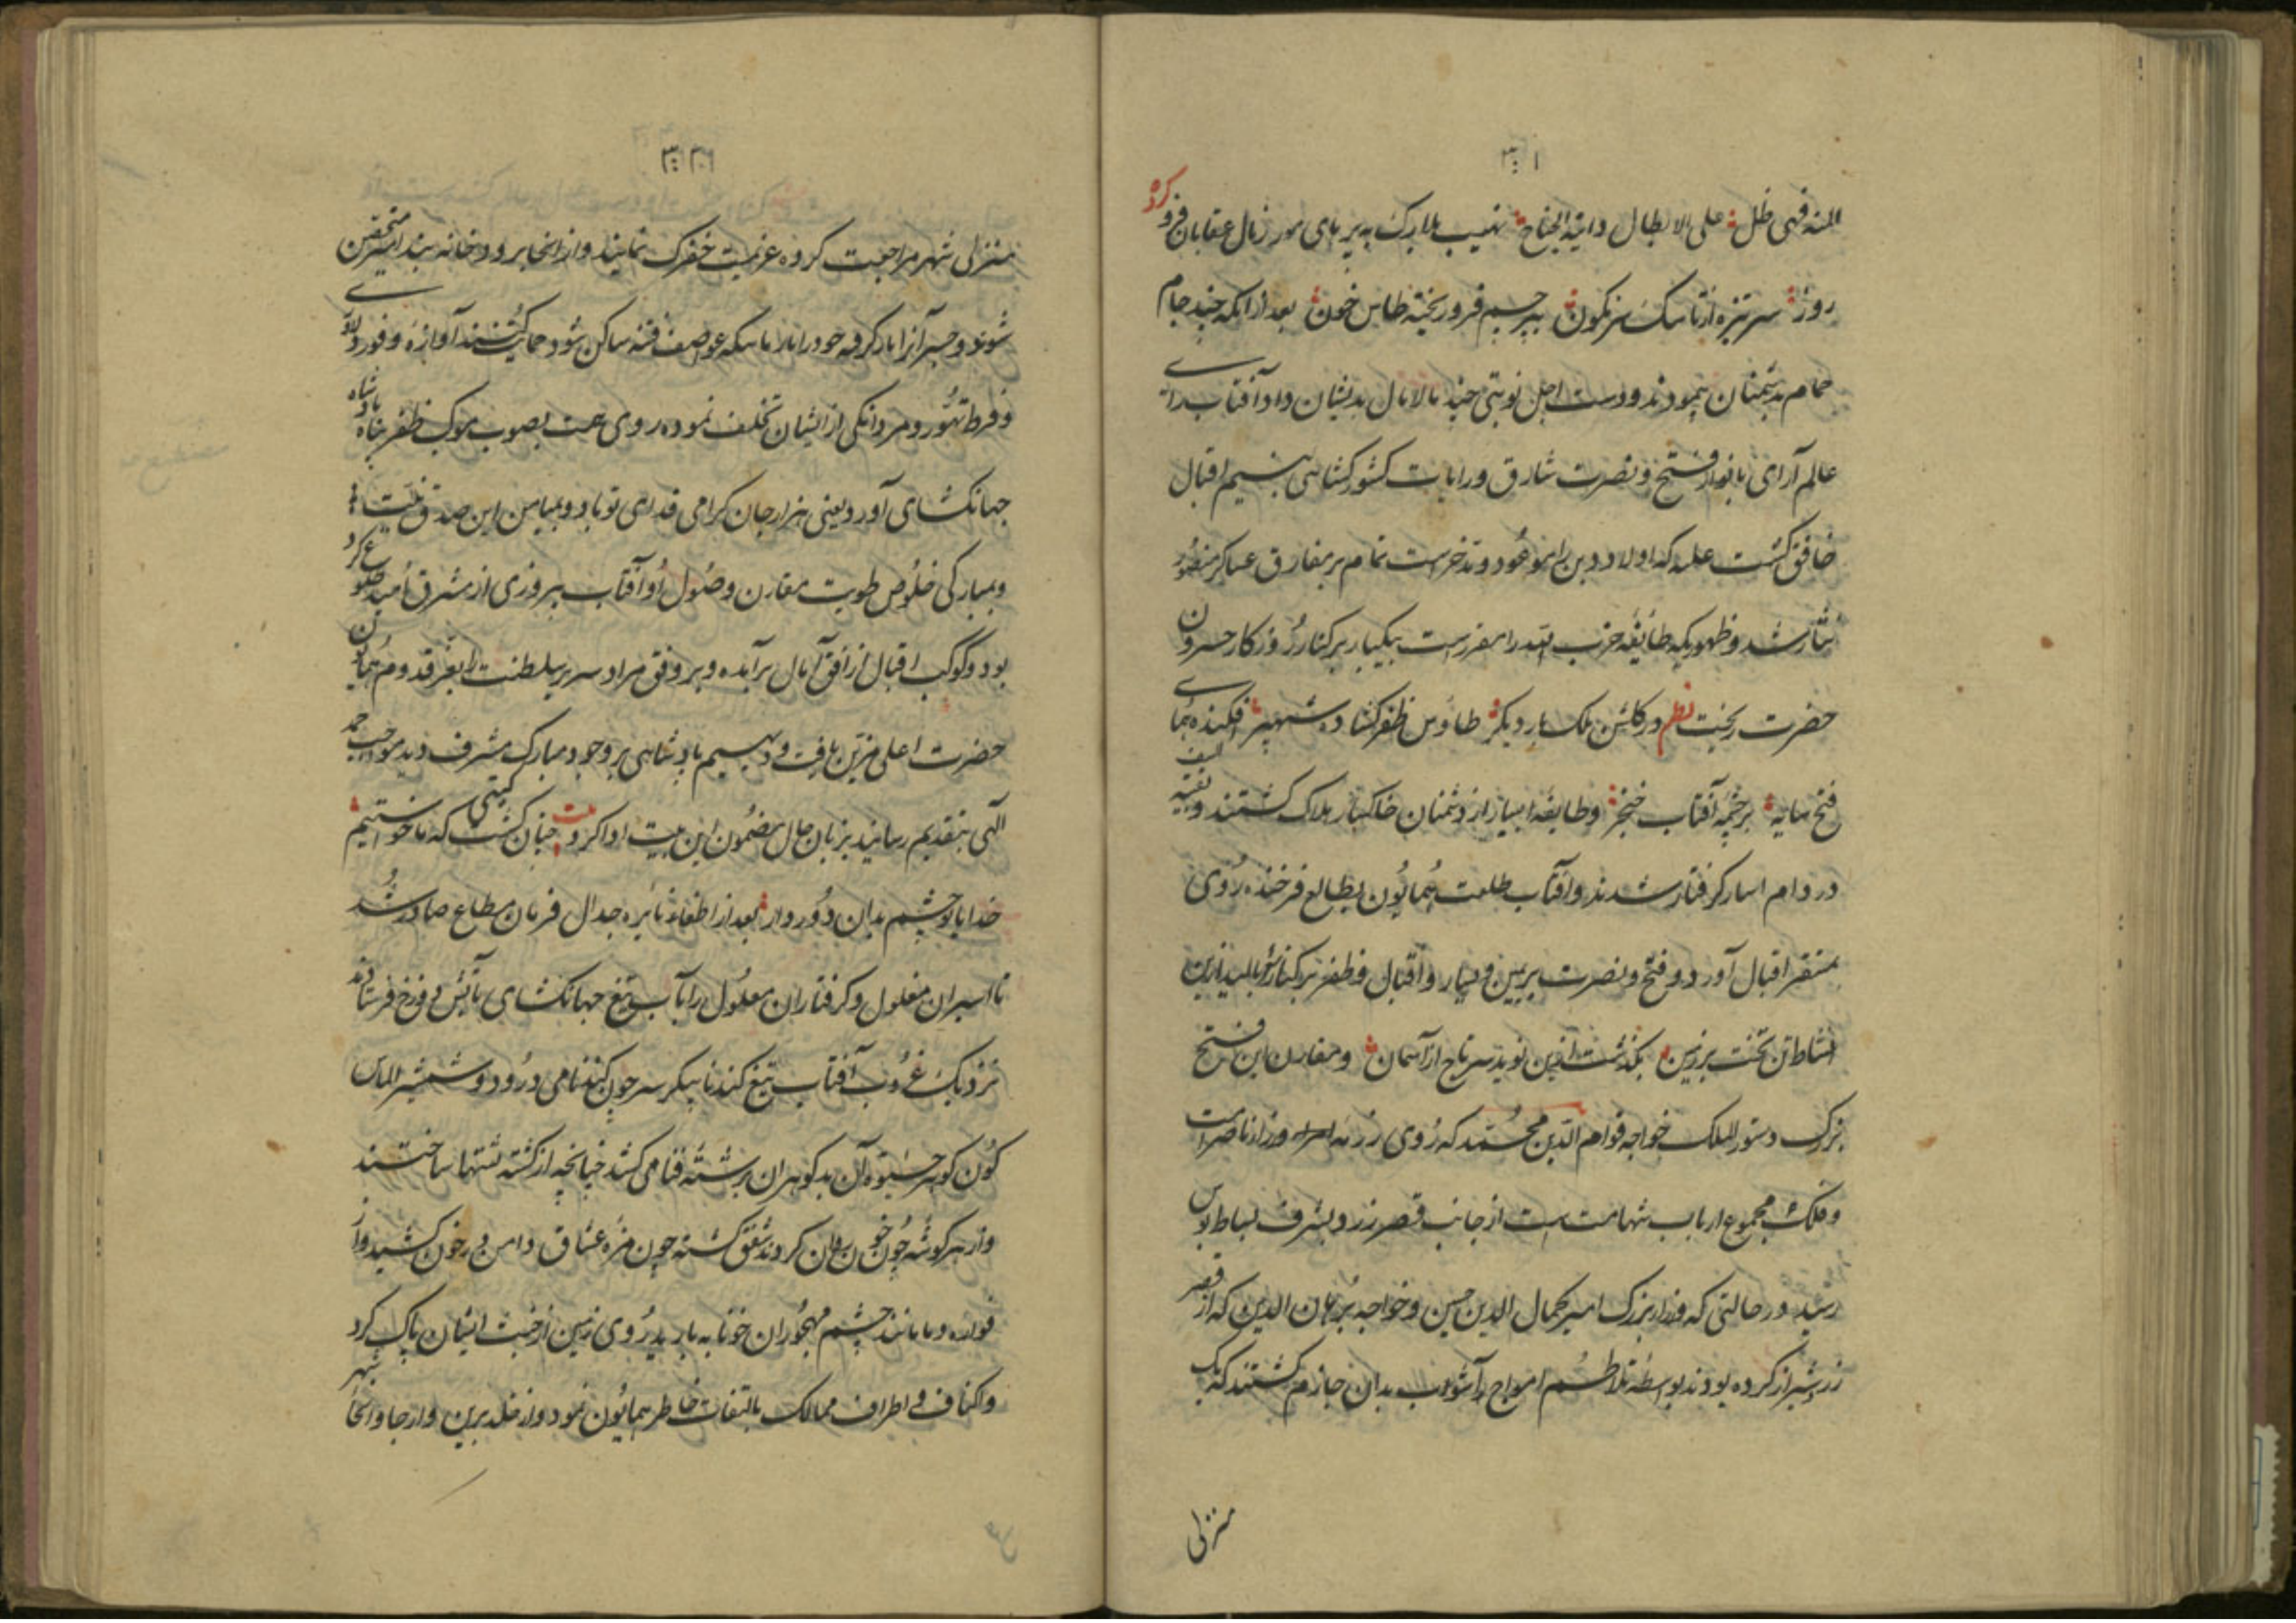 فهی ظل علی الابطال دانیة الجناح نهیب بلارک به پر های مور زبال عقابان فرو کرد
روز سر نیزه از تاسک سرنگون بپرچم فرو ریخته طاس خون بعد از آنکه چند جام
حمام بدشمنان پیمودند و دست اجل نوبتی چند مالامال بدیشان داد آفتاب رای
عالم آرای با نوار فتح و نصرت شارق و رایات کشورکشایی بنسیم اقبال
خافق گشت علیه که اولاد دین را موعود و مدخرست تمام بر مفارق عساکر منصور
نثار شد و ظهوریکه طایفه حزب الله را مقررست بیکبار بر کنار روزکار همایون
حضرت ریخت نظم در کلشن ملک بار دیکر طاوس ظفر کشاده شهپر افکنده همای
فتح سایه بر چشمه آفتاب خنجر و طایفه بسیار از دشمنان خاکسار هلاک گشتند و بقیة السیف
در دام اسار کرفتار شدند و آفتاب طلعت همایون بطالع فرخنده روی
بمستقر اقبال آورد و فتح و نصرت بر یمین و یسار و اقبال و ظفر بر کنار
نشاط تن تخت بر زمین بکذشت ازین نوید سر تاج از آسمان و مقارن این فتح
بزرک دستور الملک خواجه قوام الدین محمد که روی وزرا ناصر است
و فلک مجموع ارباب شهامت است از جانب قصر زرد بشرف بساط بوس
رسید در حالتی که وزراء بزرک امیر کمال الدین حسین و خواجه برهان الدین که از قصر
زرد شیراز کرده بودند بواسطه تلاطم امواج آشوب بدان جازم گشتند که یک
منزلی
منزلی شهر مراجعت کرده عزیمت خفرک نمایند و از انجا برودخانه بند امیر متحصن
شوند و جسر آنرا باز کرفته خود را تا ساکن شود حمایت کنند آوازه وفور دلاوری
و فرط تهور و مردانگی از ایشان تخلف نموده روی همت بصوب موکب ظفر پناه پادشاه
جهانکشای آورد یعنی هزار جان کرامی فدای تو باد و بمیامن این صدق نیت
و مبارکی خلوص طویت مقارن وصول او آفتاب پیروزی از مشرق امید طلوع کرده
بود و کوکب اقبال از افق آمال برآمده و بر وفق مراد سریر سلطنت را بعز قدوم همایون
حضرت اعلی مزین یافت و دیهیم پادشاهی بر وجود مبارک مشرف دید مواجب حمد
الهی بتقدیم رسانید بزبان حال مضمون این بیت ادا کرد بیت چنان کشت کیتی که ما خواستیم
خدایا تو چشم بدان دور دار بعد از اطفاء نایره جدال فرمان مطاع صادر شد
تا اسیران مغلول و کرفتاران معلول را بآب تیغ جهانکشای بآتش دوزخ فرستادند
نزدیک غروب آفتاب تیغ کندنا پیکر سر چون کندنا می درود و شمشیر الماس
کون کوهر آن بدکوهران بر رشته فنا می کشد چنانچه از کشته پشتها ساختند
و از هر کوشه جوی خون روان کردند شفق کشته چون مژه عشاق دامن در خون کشید و از
فواره دما مانند چشم مهجوران خونابه بارید روی زمین از خبث ایشان پاک کرد
و اکناف و اطراف ممالک بالتفات خاطر همایون نمودار خلد برین و ارجا و انحاء شهر